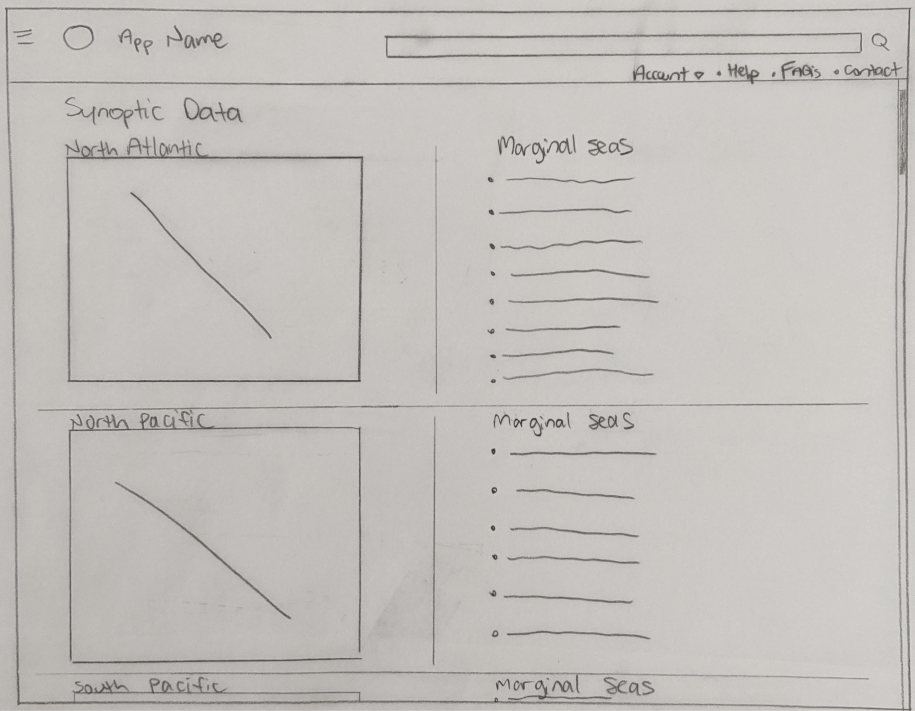 App Name
Account • Help • FAQs • Contact
Synoptic Data
North Atlantic
Marginal seas
North Pacific
Marginal seas
South Pacific
Marginal Seas